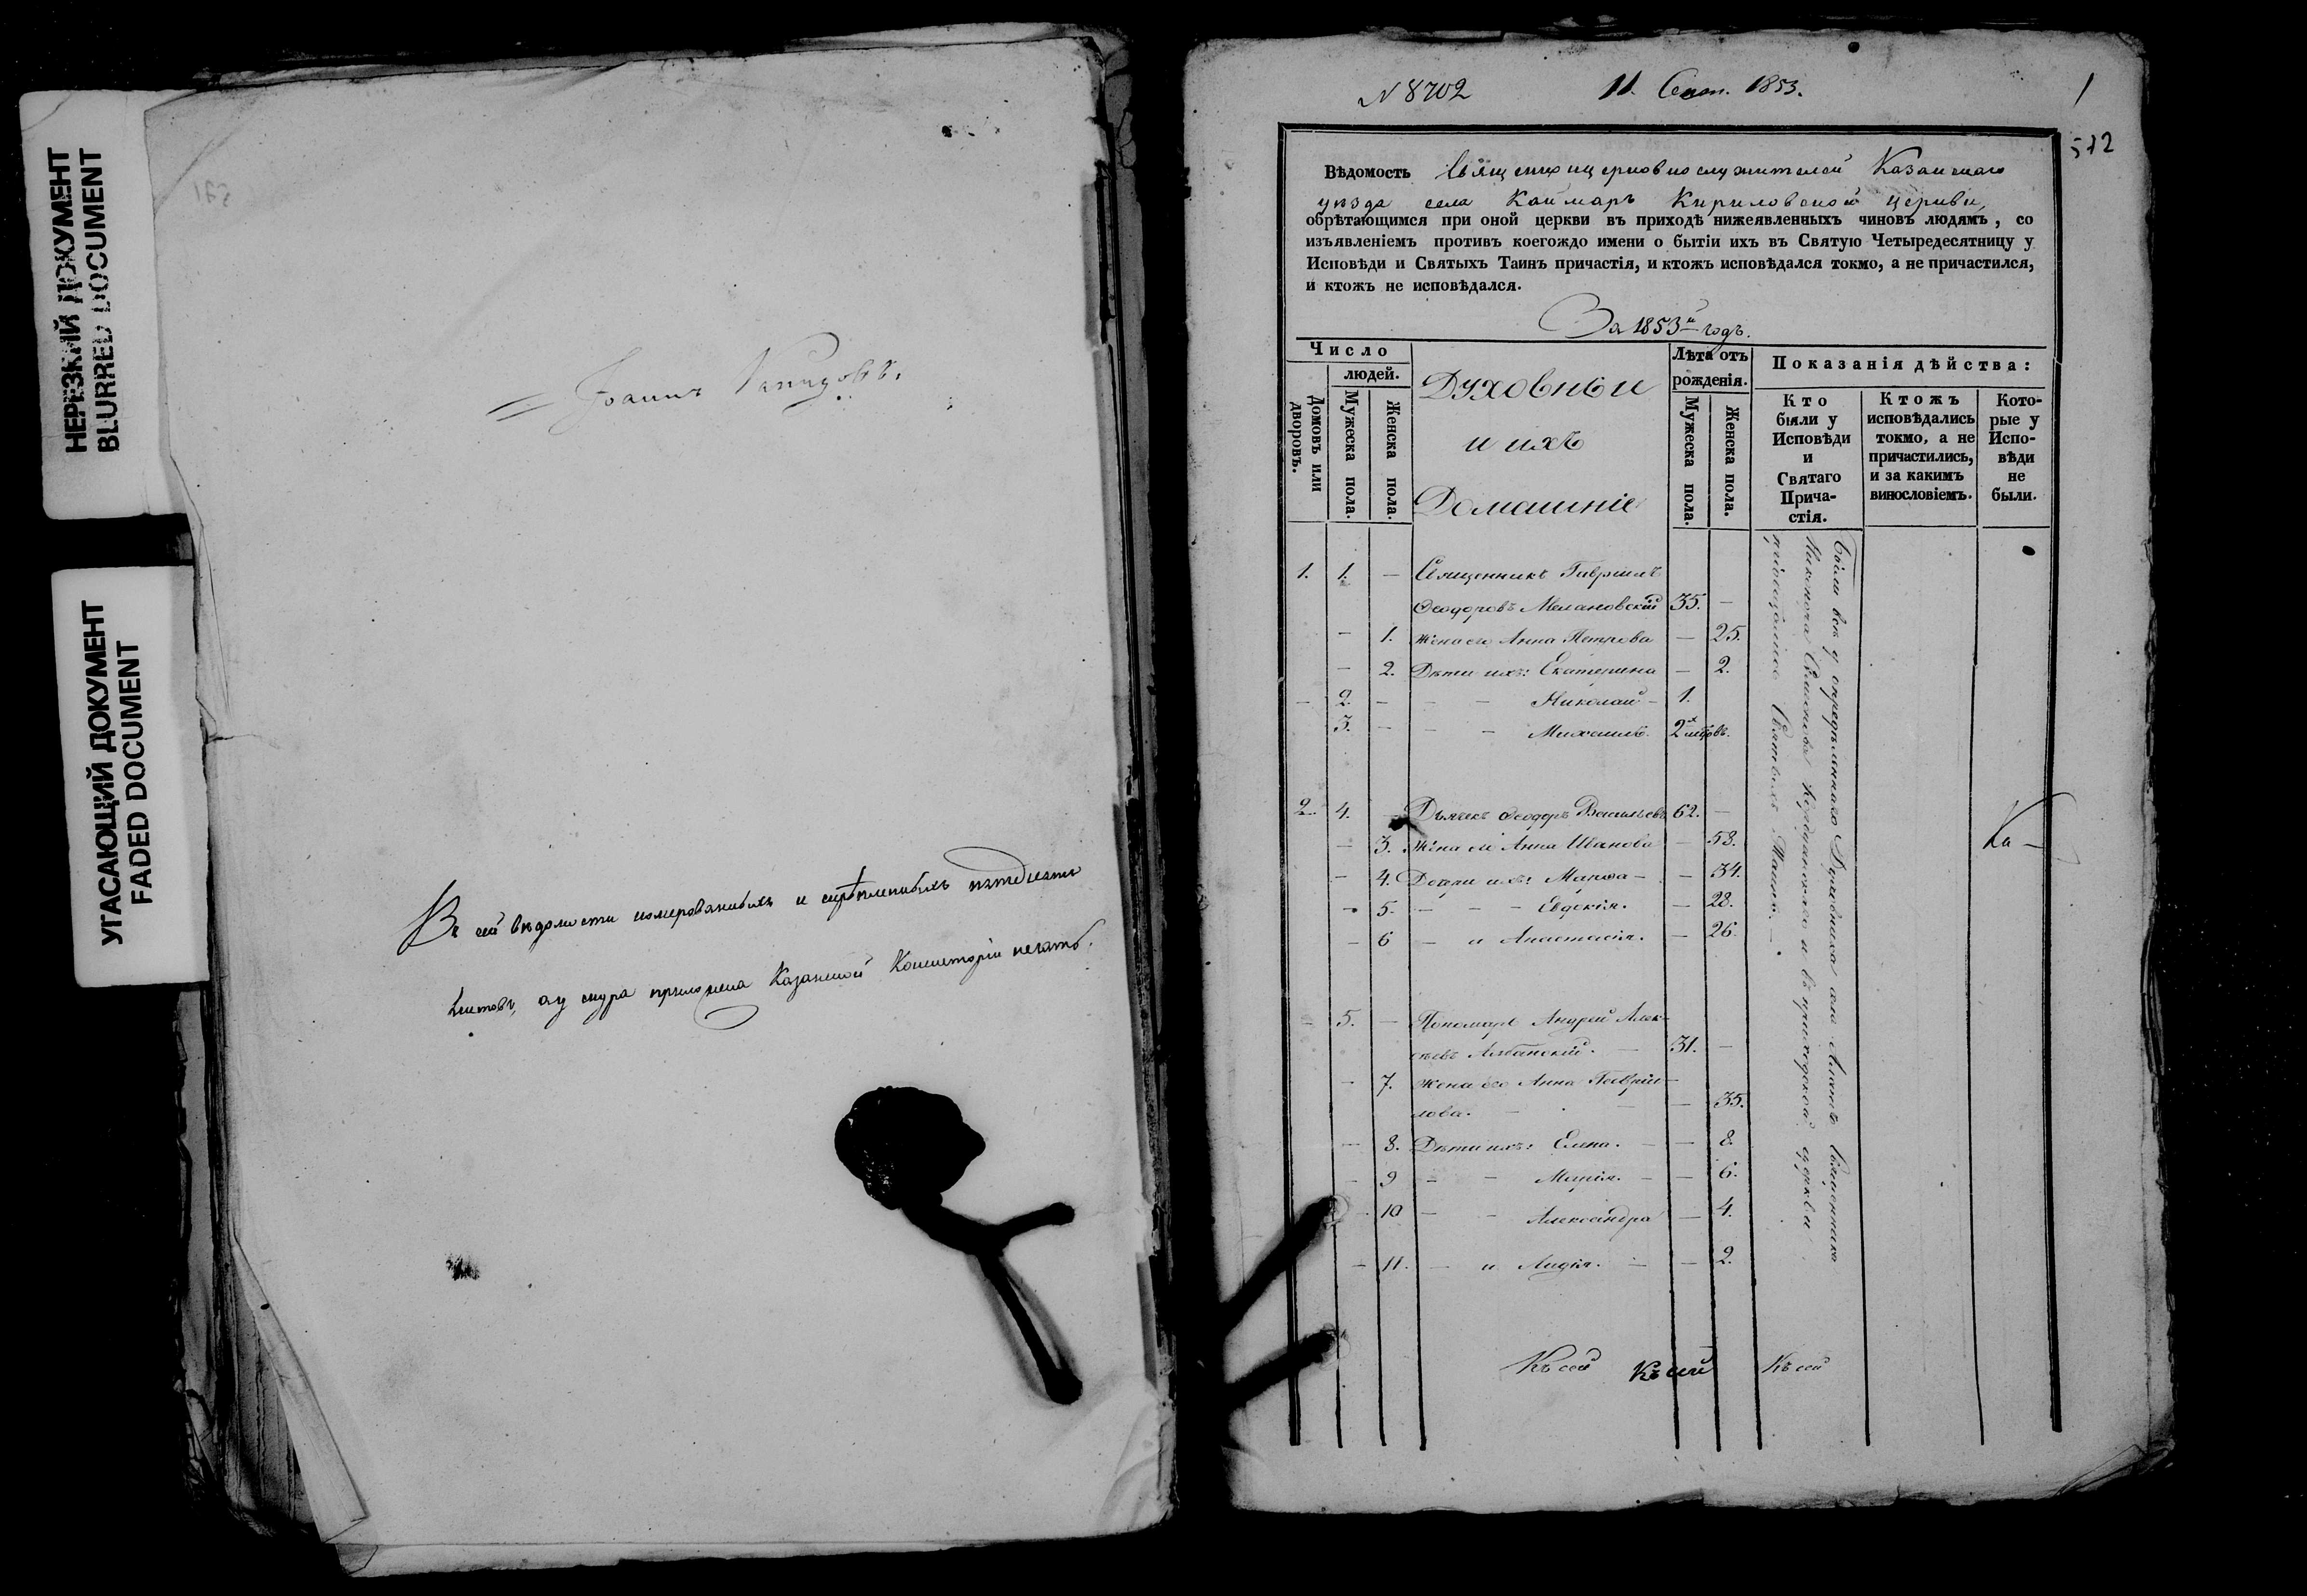 НЕРЕЗКИЙ ДОКУМЕНТ
BLURRED DOCUMENT
УГАСАЮЩИЙ ДОКУМЕНТ
FADED DOCUMENT
Іоаннъ
Въ сей вѣдомости номерованныхъ и скрѣпленныхъ пятдесятъ
листовъ, а у снура приложена Казанской Консисторіи печать.
N 8702 11. Сент. 1853. 1
512
Вѣдомость Священноицерковнослужителей Казанскаго
уѣзда села Каймаръ Кириловской церкви,
обрѣтающимся при оной церкви въ приходѣ нижеявленныхъ чиновъ людямъ, со
изъявленіемъ противъ коегождо имени о бытіи ихъ въ Святую Четыредесятницу у
Исповѣди и Святыхъ Таинъ причастія, и ктожъ исповѣдался токмо, а не причастился,
и ктожъ не исповѣдался.
За 1853й годъ.
Число
людей.
Домовъ или дворовъ.
Мужеска пола.
Женска пола.
Духовныи
и ихъ
Домашніе
Лѣта отъ
рожденія.
Мужеска пола.
Женска пола.
Показанія дѣйства:
Кто
были у
Исповѣди
и
Святаго
Прича-
стія.
Ктожъ
исповѣдались
токмо, а не
причастились,
и за какимъ
винословіемъ.
Кото-
рые у
Испо-
вѣди
не
были.
1. 1. — Священникъ Гавріилъ
Ѳеодоровъ Милановскій 35. —
— 1. Жена его Анна Петрова — 25.
— 2. Дѣти ихъ: Екатерина — 2.
— 2. — — — Николай — 1.
3. — — — Михаилъ. 2х мѣсяцовъ.
2. 4. — Дьячекъ Ѳеодоръ Васильевъ 62. —
— 3. Жена его Анна Иванова — 58.
— 4. Дочери ихъ: Марѳа — — 34.
— 5. — — — Евдокія. — 28.
— 6 — и Анастасія. — 26.
— 5. — Пономарь Андрей Алек-
сѣевъ Албанскій. — 31. —
— 7. Жена его Анна Гаврии-
лова. — — — 35.
— 8. Дѣти ихъ: Елена. — — 8.
— 9 — — Марія. — — 6.
— 10 — — Александра — 4.
— 11. — и Лидія. — — 2.
Были всѣ у опредѣленнаго Духовника села Священника
и въ приходской церкви
пріобщались Святыхъ Таинъ. —
Ка —
Къ сей Къ сей Къ сей